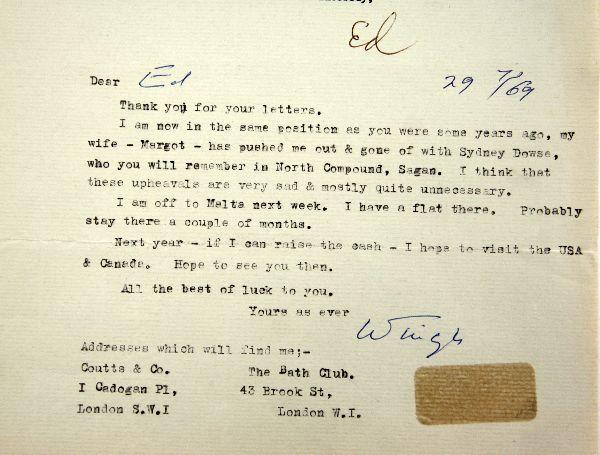 Ed
Dear Ed 29 7/69
Thank you for your letters.
I am now in the same position as you were some years ago, my
wife - Margot - has pushed me out & gone of with Sydney Dowse,
who you will remember in North Compound, Sagan. I think that
these upheavals are very sad & mostly quite unnecessary.
I am off to Malta next week. I have a flat there. Probably
stay there a couple of months.
Next year - if I can raise the cash - I hope to visit the USA
& Canada. Hope to see you then.
All the best of luck to you.
Yours as ever
Addresses which will find me;-
Coutts & Co. The Bath Club.
I Cadogan Pl, 43 Brook St,
London S.W.I London W.I.